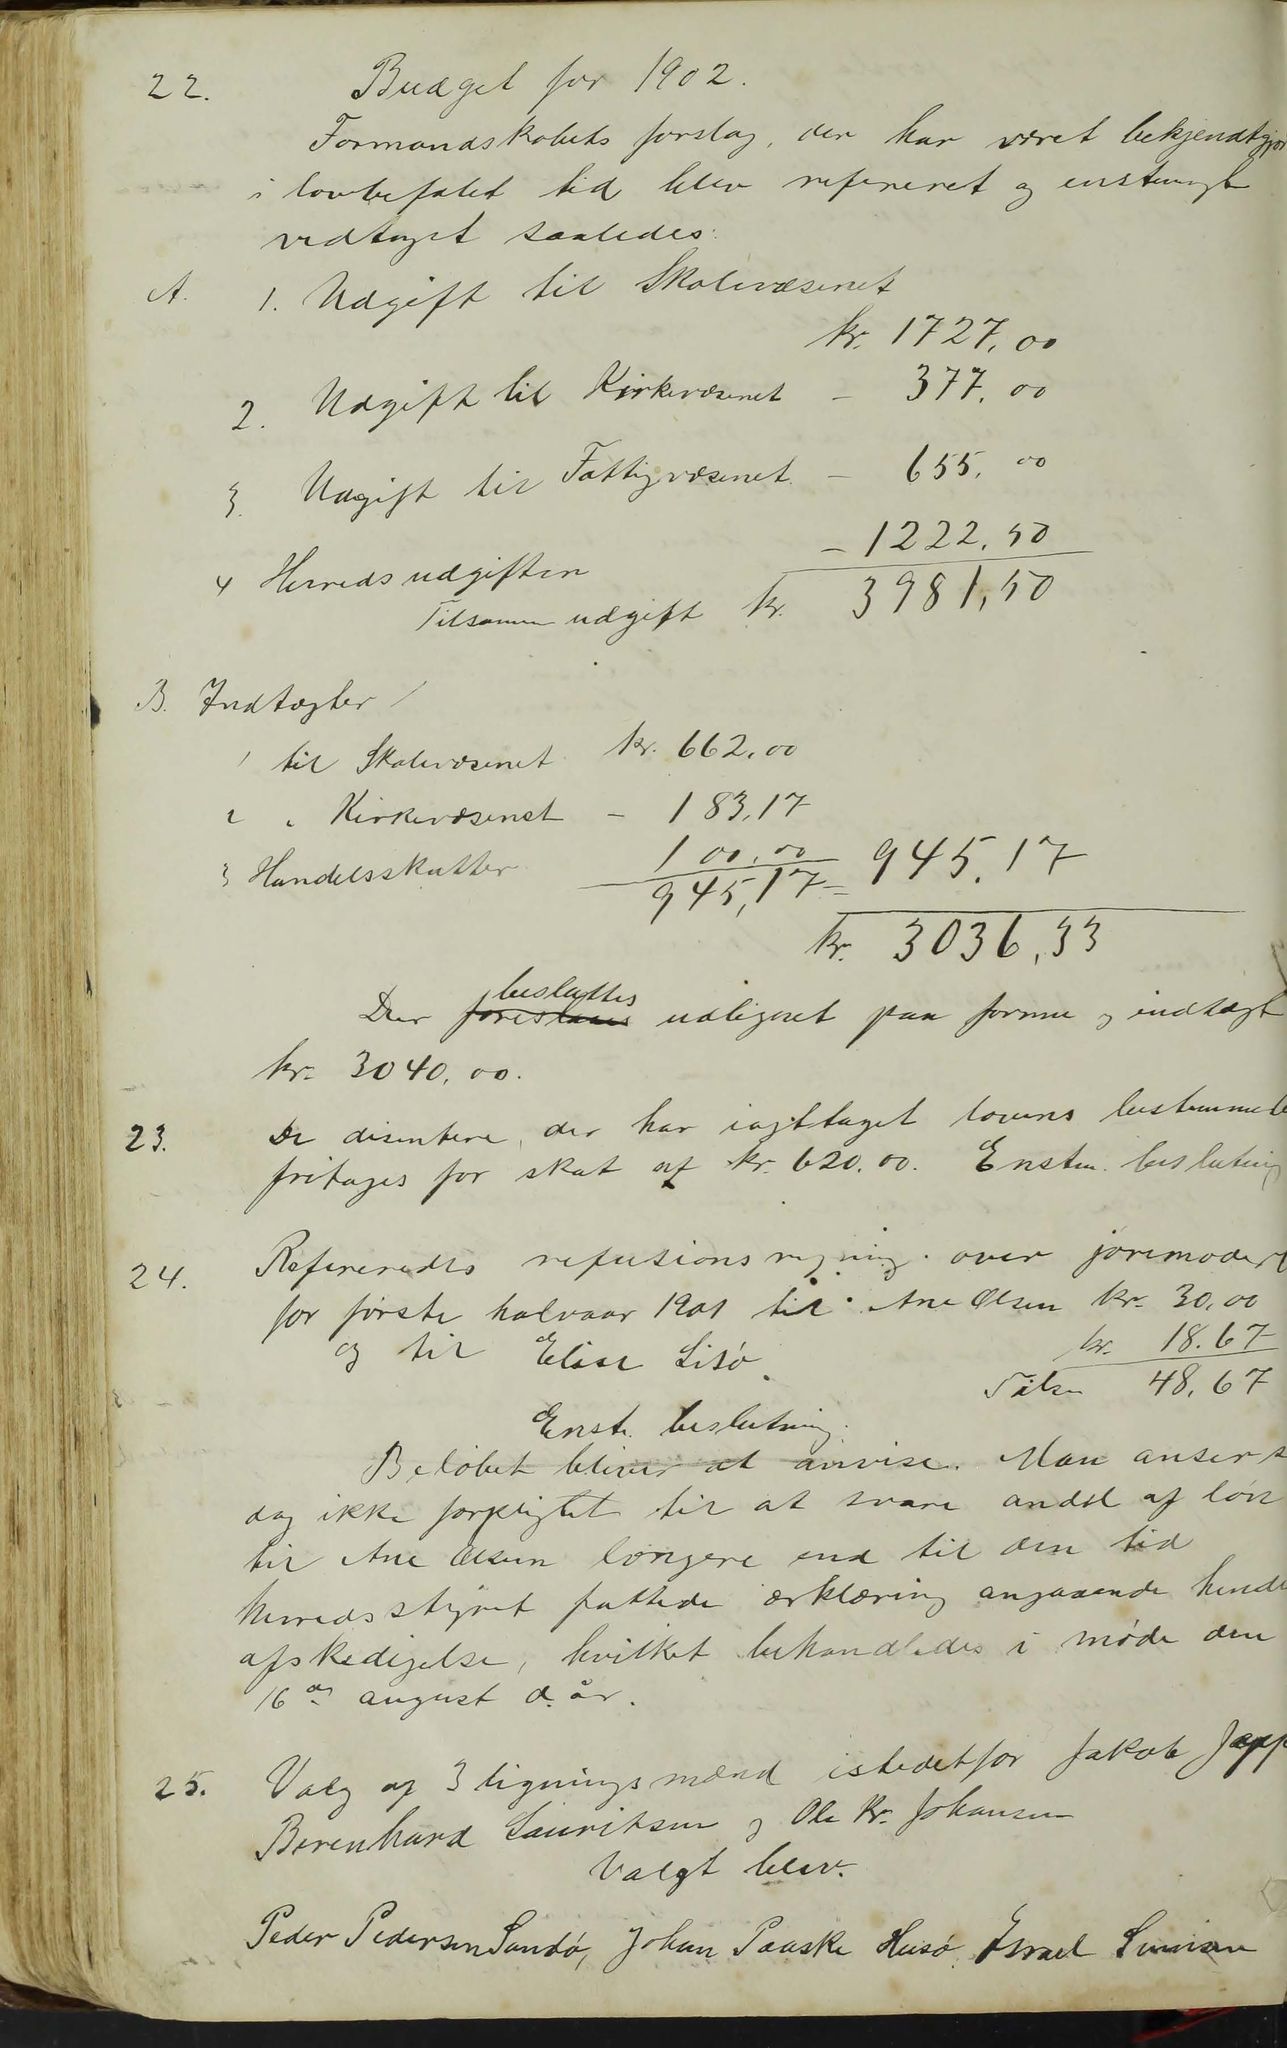 22. Budget for 1902.
Formandskabets forslag, der har været bekjendtgjor
i lovbefalet tid blev refereret og enstemigt
vedtaget saaledes:
A. 1. Udgift til Skolevæsenet
kr. 1727,00
2. Udgift til Kirkevæsenet - 377,00
3. Udgift til Fattigvæsenet - 655,00
- 1222,50
4 Herredsudgifter
Tilsammen udgift kr. 3981,50
B. Indtægter
1 til Skolevæsenet kr. 662,00
2 " Kirkevæsenet - 183,17
3 Handelsskatter 100,00
945,17 = 945,17
kr. 3036,33
besluttes
Der foreslaaes udlignet paa formue og indtægt
kr. 3040,00.
23. De disentere, der har iagttaget lovens bestemmel
fritages for skat af kr. 620,00. Enstm. beslutning
24. Refereredes refusionsregning over jormoder
for første halvaar 1901 til Ane Olsen kr. 30,00
og til Elise Lisø kr. 18.67
Tils 48,67
Enst. beslutning.
Beløbet bliver at anvise. Man anser s
dog ikke forpligtet til at svare andel af løn
til Ane Olsen længere end til den tid
herredsstyret fattede erklæring angaaende hende
afskedigelse, hvilket behandledes i møde den
16de august d. år.
25. Valg af 3 ligningsmænd istedetfor Jakob Japp
Berenhard Lauritsen og Ole Kr. Johansen
Valgt blev.
Peder Pedersen Sandø, Johan Paaske Husø, Israel